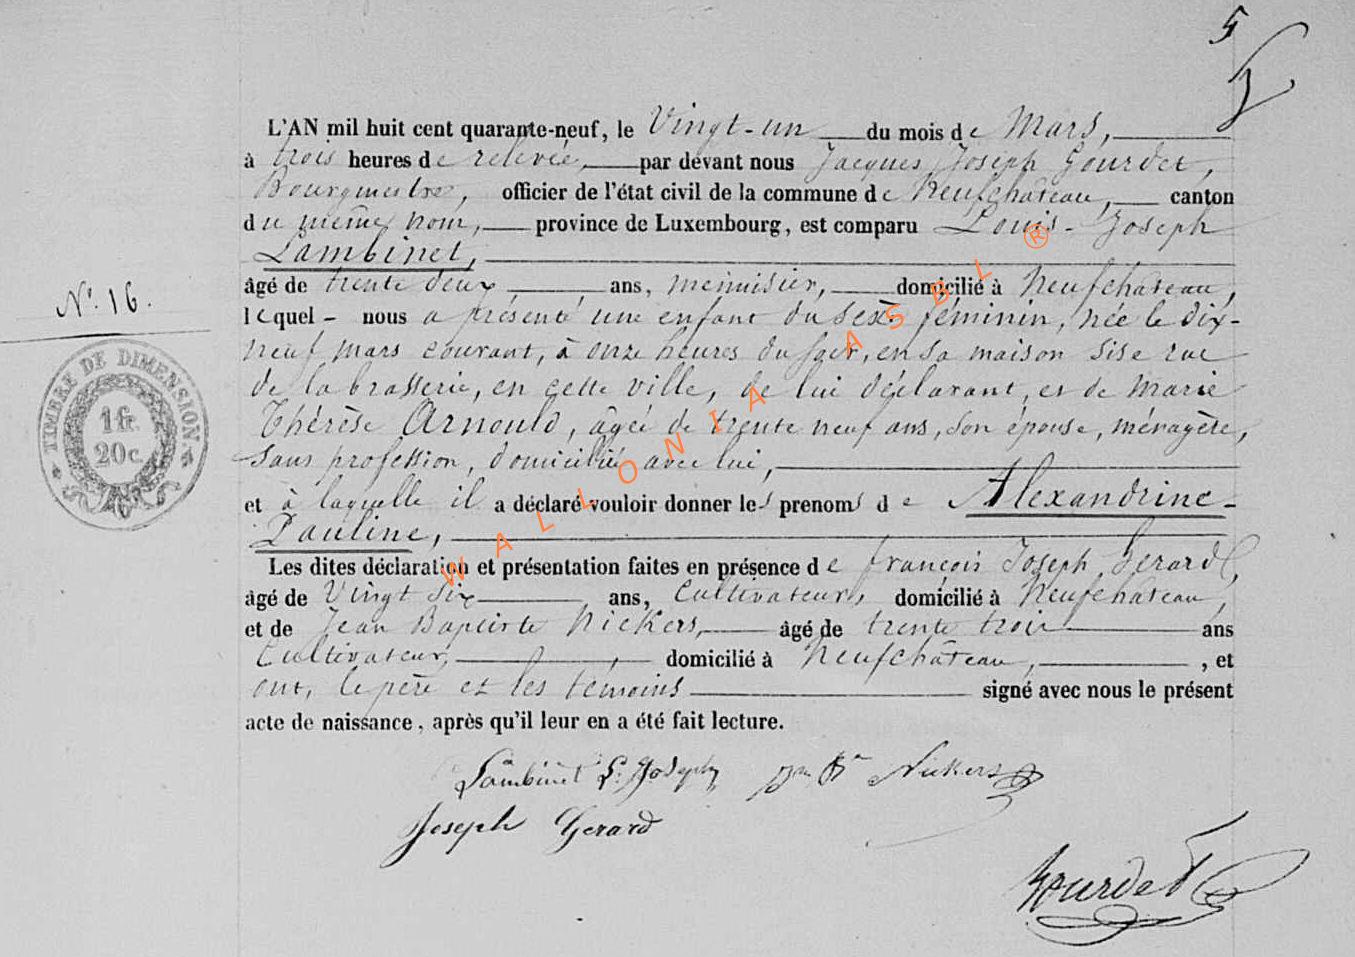 5
L'AN mil huit cent quarante-neuf, le Vingt-un du mois de Mars,
à trois heures de relevée, par devant nous Jacques Joseph Gourdet,
Bourgmestre, officier de l'état civil de la commune de Neufchâteau, canton
du même nom, province de Luxembourg, est comparu Louis-Joseph
Lambinet,
âgé de trente deux ans, menuisier, domicilié à Neufchateau,
lequel - nous a présenté une enfant du sexe féminin, née le dix-
neuf mars courant, à onze heures du soir, en sa maison sise rue
de la brasserie, en cette ville, de lui déclarant, et de Marie
Thérèse Arnould, âgée de trente neuf ans, son épouse, ménagère,
sans profession, domiciliée avec lui,
et à laquelle il a déclaré vouloir donner les prenoms de Alexandrine-
Pauline,
Les dites déclaration et présentation faites en présence de françois Joseph Gerard,
âgé de Vingt six ans, Cultivateur, domicilié à Neufchateau,
et de Jean Baptiste Nickers, âgé de trente trois ans
Cultivateur, domicilié à Neufchâteau, , et
ont, le père et les témoins signé avec nous le présent
acte de naissance, après qu'il leur en a été fait lecture.
N.° 16.
TIMBRE DE DIMENSION
1 fr.
20 c.
Lambinet L. Joseph Jn Bte Nickers
Joseph Gerard
Gourdet
WALLONIA ASBL ®